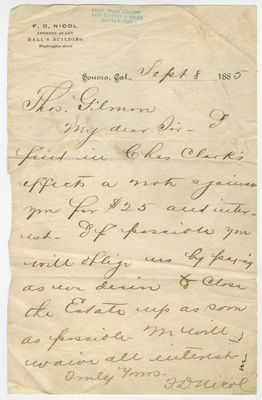 F. D. NICOL
ATTORNEY AT LAW
HALL'S BUILDING
Washington Street
Sonora, Cal., Sept 8 1885
Thos. Gilmon
My dear Sir - I
find in Chas Clark's
effects a note against
you for $25 and inter-
est - If possible you
will oblige us by paying
as we desire to close
the Estate up as soon
as possible. We will
waive all interest -
Truly Yours -
F D Nicol